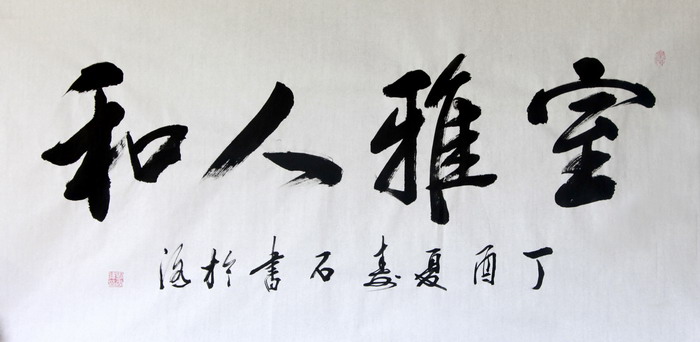 室雅人和
丁酉夏寿石书於洛